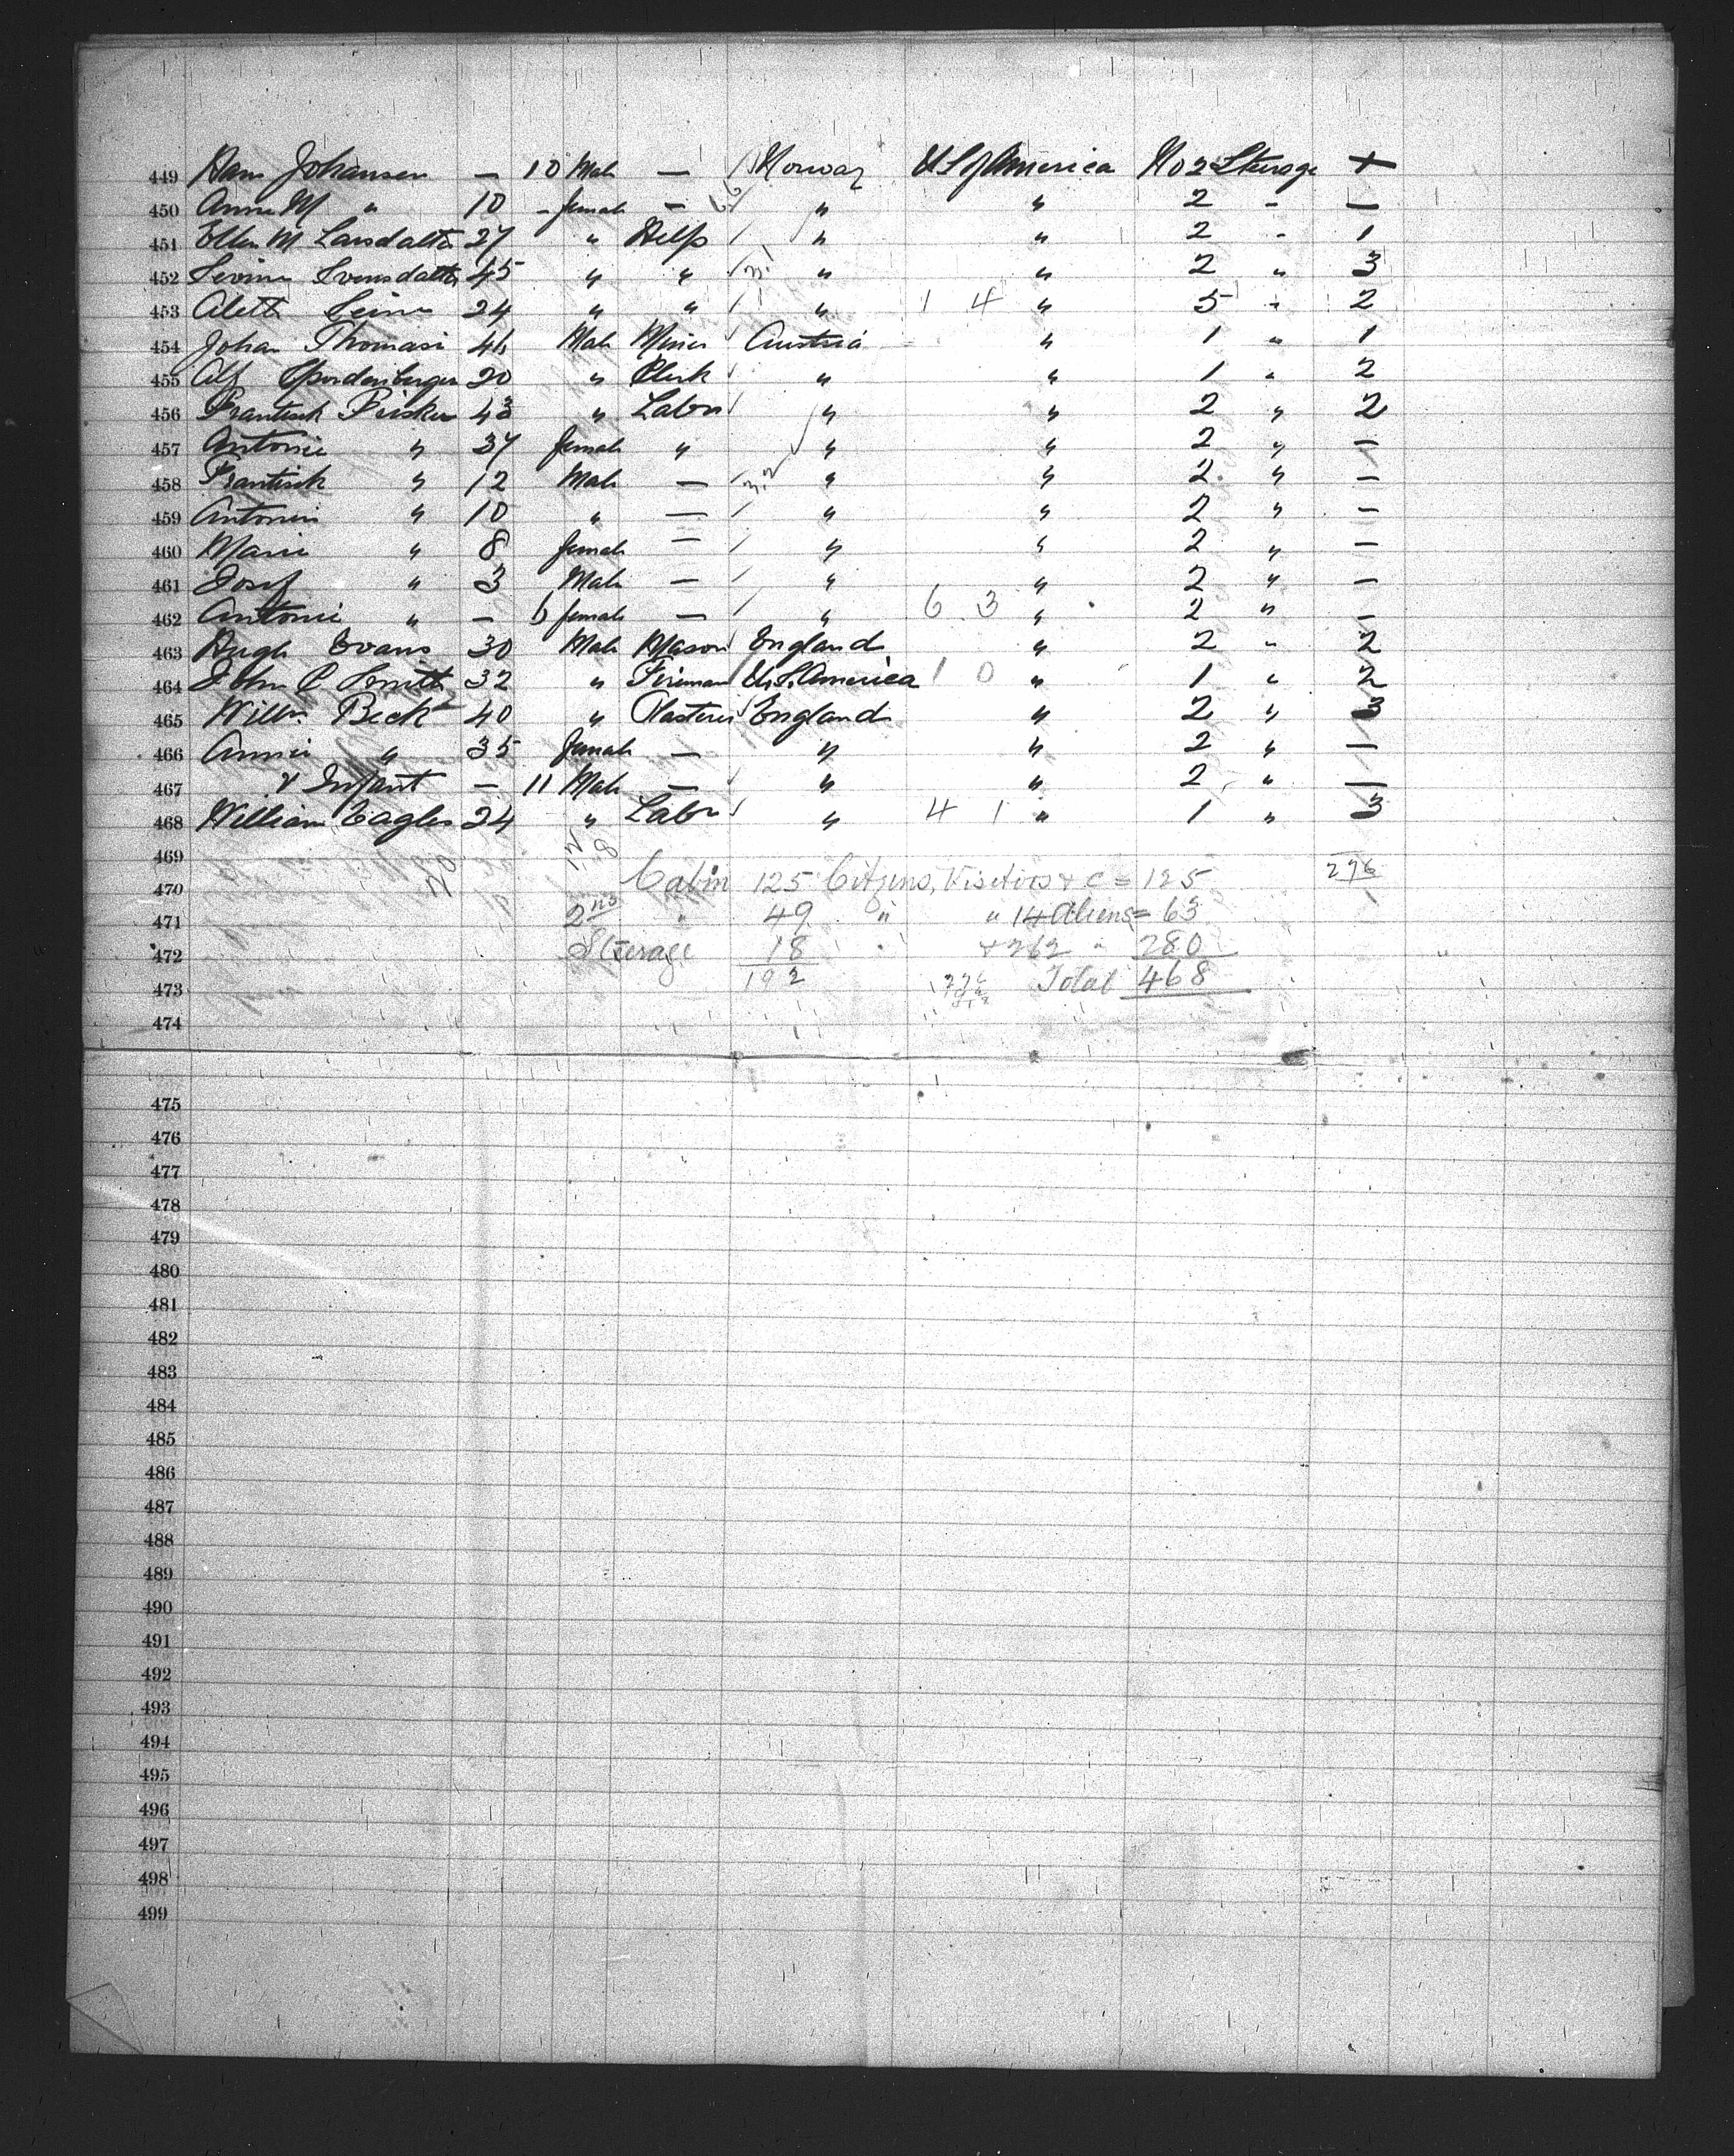 449 Hans Johansen — 10 Male — Norway U S of America No 2 Sterage +
450 Anna M " 10 - female — " " 2 - —
451 Ellen M Larsdatter 27 " Help " " 2 - 1
452 Svensdatter 45 " " " " 2 " 3
453 Alett 24 " " " 1 4 " 5 " 2
454 Johan Thomasi 46 Male Miner Austria " 1 " 1
455 Alf 20 " Clerk " " 1 " 2
456 Frantisek 43 " Labor " " 2 " 2
457 Antonie " 37 female " " " 2 " —
458 Frantisek " 12 Male — " " 2 " —
459 Antonin " 10 " — " " 2 " —
460 Marie " 8 female — " " 2 " —
461 Josef " 3 Male — " " 2 " —
462 Antonie " — 6 female — " 6 3 " 2 " —
463 Hugh Evans 30 Male Mason England " 2 " 2
464 John P Smith 32 " Fireman U.S. America 1 0 " 1 " 2
465 Willm. Beck 40 " Plasterer England " 2 " 3
466 Annie " 35 female — " " 2 " —
467 & Infant — 11 Male — " " 2 " —
468 William Eagles 24 " Labor " 4 1 " 1 " 3
469
470 Cabin 125 Citizens, Visitors & c = 125 276
471 2nd " 49 " " 14 Aliens = 63
472 Sterage 18 " + 262 " 280
473 192 Total 468
474
475
476
477
478
479
480
481
482
483
484
485
486
487
488
489
490
491
492
493
494
495
496
497
498
499